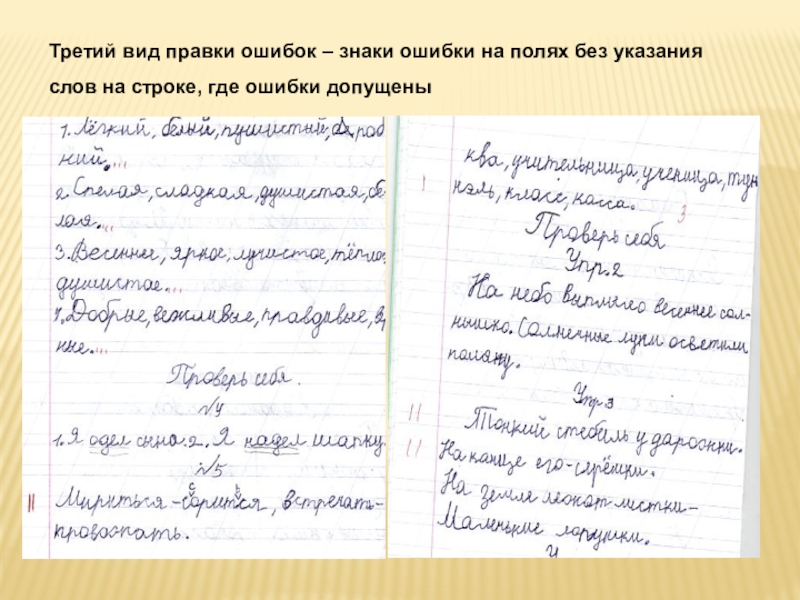 Третий вид правки ошибок – знаки ошибки на полях без указания
слов на строке, где ошибки допущены
1. Лёгкий, белый, пушистый,
ний....
2. Спелая, сладкая, душистая, бе-
лая....
3. Весеннее, яркое, лучистое, тёпло
душистое....
4. Добрые, вежливые, правдивые, в
ные....
Проверь себя.
№4
1. Я одел сына. 2. Я надел шапку
№5
II Мириться – сорится, встречать-
провожать.
ква, учительница, ученица, тун
I нэль, класс, касса.
3
Проверь себя
Упр. 2
На небо выплыло весенее сол-
нышко. Солнечные лучи осветили
паляну.
Упр 3
II Тонкий стебиль у дорожки.
II На канце его-серёжки.
На земле лежат листки-
Маленькие лопушки.